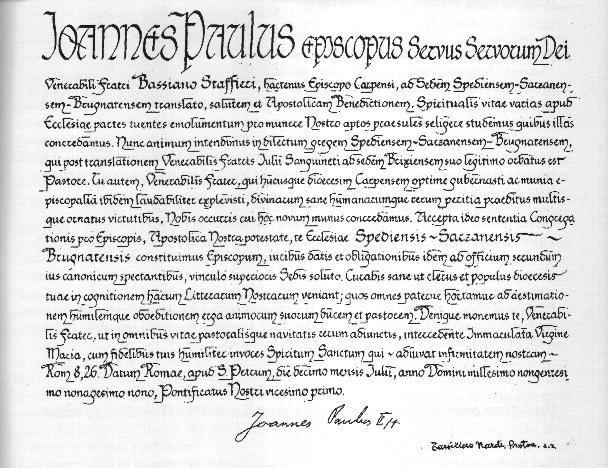 Joannes Paulus Episcopus Servus Servorum Dei
Venerabili Fratri Bassiano Staffieri, hactenus Episcopo Carpensi, ad Sedem Spediensem-Sarzanen-
sem-Brugnatensem translato, salutem et Apostolicam Benedictionem. Spiritualis vitae varias apud
Ecclesiae partes tuentes emolumentum pro munere Nostro aptos praesules seligere studemus quibus illas
concredamus. Nunc animum intendimus in dilectum gregem Spediensem-Sarzanensem-Brugnatensem,
qui post translationem Venerabilis Fratris Iulii Sanguineti ad sedem Brixiensem suo legitimo orbatus est
Pastore. Tu autem, Venerabilis Frater, qui hucusque dioecesim Carpensem optime gubernasti ac munia e-
piscopalia ibidem laudabiliter explevisti, divinarum sane humanarumque rerum peritia praeditus multis-
que ornatus virtutibus, Nobis occurris cui hoc novum munus concredamus. Accepta ideo sententia Congrega
tionis pro Episcopis, Apostolica Nostra potestate, te Ecclesiae Spediensis-Sarzanensis-
Brugnatensis constituimus Episcopum, iuribus datis et obligationibus idem ad officium secundum
ius canonicum spectantibus, vinculo superioris Sedis soluto. Curabis sane ut clerus et populus dioecesis
tuae in cognitionem harum Litterarum Nostrarum veniant; quos omnes paterne hortamur ad aestimatio-
nem humilemque oboeditionem erga animorum suorum ducem et pastorem. Denique monemus te, Venerabi-
lis Frater, ut in omnibus vitae pastoralisque navitatis rerum adiunctis, intercedente Immaculata Virgine
Maria, cum fidelibus tuis humiliter invoces Spiritum Sanctum qui "adiuvat infirmitatem nostram"
Rom 8,26. Datum Romae, apud S. Petrum, die decimo mensis Iulii, anno Domini millesimo nongentesi
mo nonagesimo nono, Pontificatus Nostri vicesimo primo.
Joannes Paulus II
Nardi, Proton. a.n.